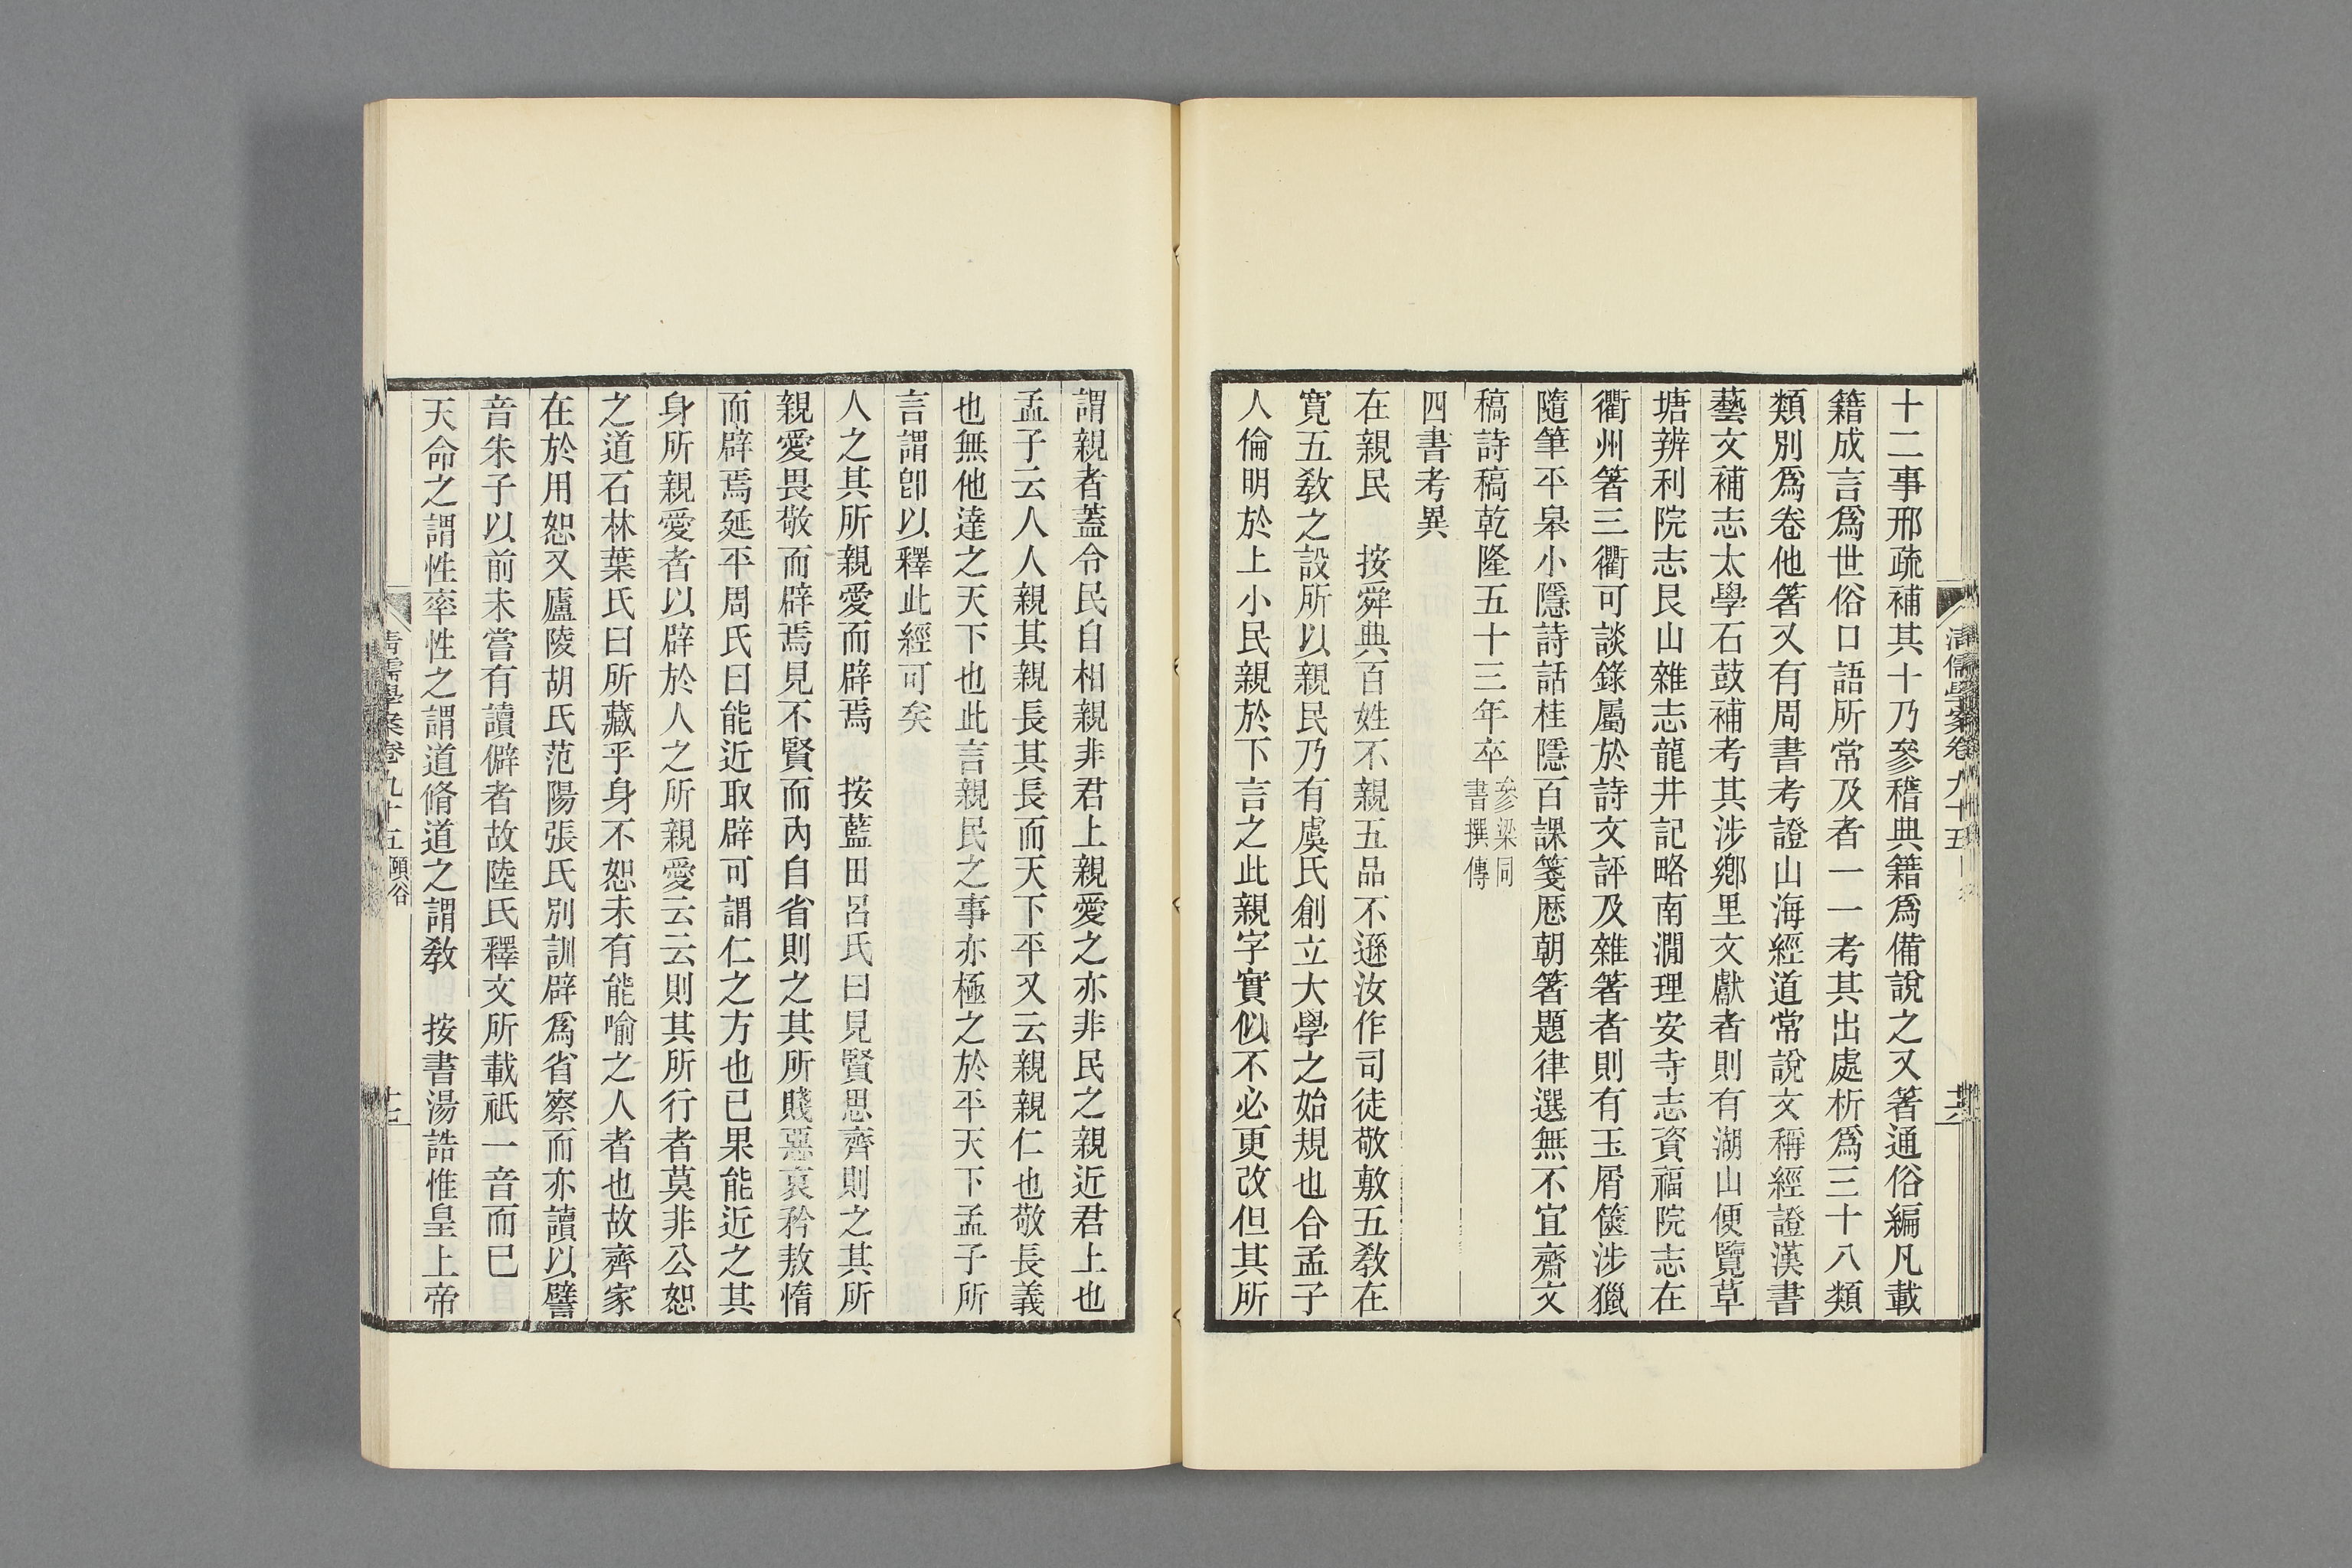 十二事邢疏補其十乃參稽典籍爲備說之又箸通俗編凡載
籍成言爲世俗口語所常及者一一考其出處析爲三十八類
類別爲卷他箸又有周書考證山海經道常說文稱經證漢書
藝文補志太學石鼓補考其涉鄕里文獻者則有湖山便覽草
塘辨利院志艮山雜志龍井記略南澗理安寺志資福院志在
衢州箸三衢可談錄屬於詩文評及雜箸者則有玉屑篋涉獵
隨筆平皋小隱詩話桂隱百課箋厯朝箸題律選無不宜齋文
稿詩稿乾隆五十三年卒參梁同書撰傳
四書考異
在親民　按舜典百姓不親五品不遜汝作司徒敬敷五敎在
寬五敎之設所以親民乃有虞氏創立大學之始規也合孟子
人倫明於上小民親於下言之此親字實似不必更改但其所
清儒學案卷九十五
十六
謂親者蓋令民自相親非君上親愛之亦非民之親近君上也
孟子云人人親其親長其長而天下平又云親親仁也敬長義
也無他達之天下也此言親民之事亦極之於平天下孟子所
言謂卽以釋此經可矣
人之其所親愛而辟焉　按藍田呂氏曰見賢思齊則之其所
親愛畏敬而辟焉見不賢而內自省則之其所賤惡哀矜敖惰
而辟焉延平周氏曰能近取辟可謂仁之方也已果能近之其
身所親愛者以辟於人之所親愛云云則其所行者莫非公恕
之道石林葉氏曰所藏乎身不恕未有能喻之人者也故齊家
在於用恕又廬陵胡氏范陽張氏別訓辟爲省察而亦讀以譬
音朱子以前未嘗有讀僻者故陸氏釋文所載祇一音而已
天命之謂性率性之謂道脩道之謂敎　按書湯誥惟皇上帝
清儒學案卷九十五　頤谷
十七